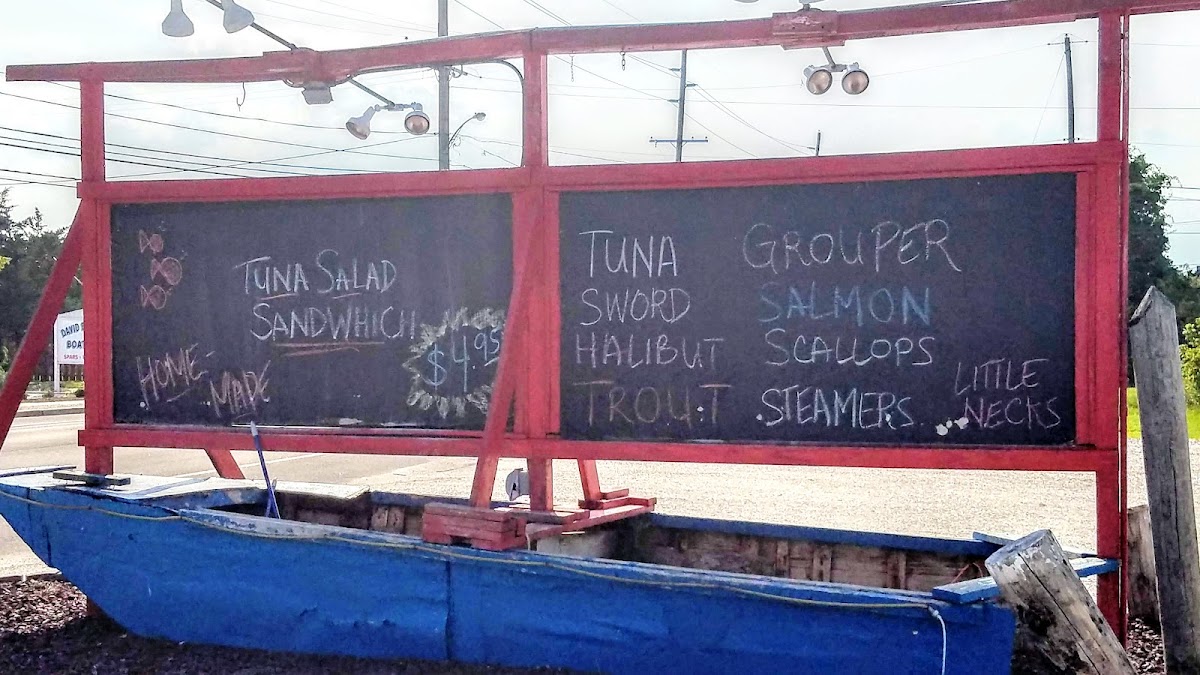 TUNA SALAD
SANDWHICH
$4.95
HOME-
MADE
TUNA
SWORD
HALIBUT
TROUT
GROUPER
SALMON
SCALLOPS
STEAMERS
LITTLE
NECKS
DAVID
BOAT
SPARS